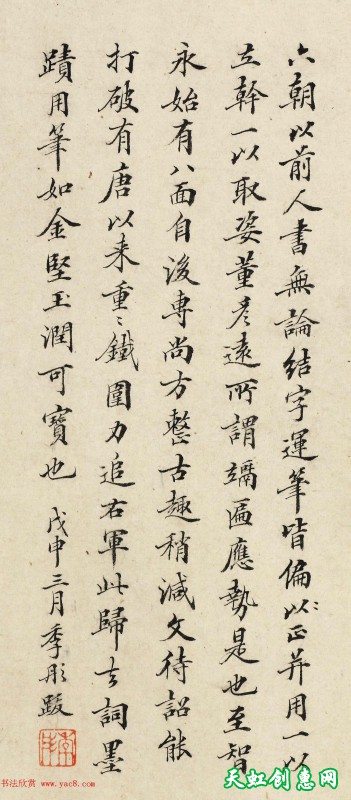 六朝以前人書無論結字運筆皆偏以正并用一以
立幹一以取姿董彦遠所謂竵匾應勢是也至智
永始有八面自後專尚方整古趣稍減文待詔能
打破有唐以来重〻鐵圍力追右軍此歸去詞墨
蹟用筆如金堅玉潤可寶也 戊申三月季彤跋
书法欣赏 www.yac8.com
天虹创惠网